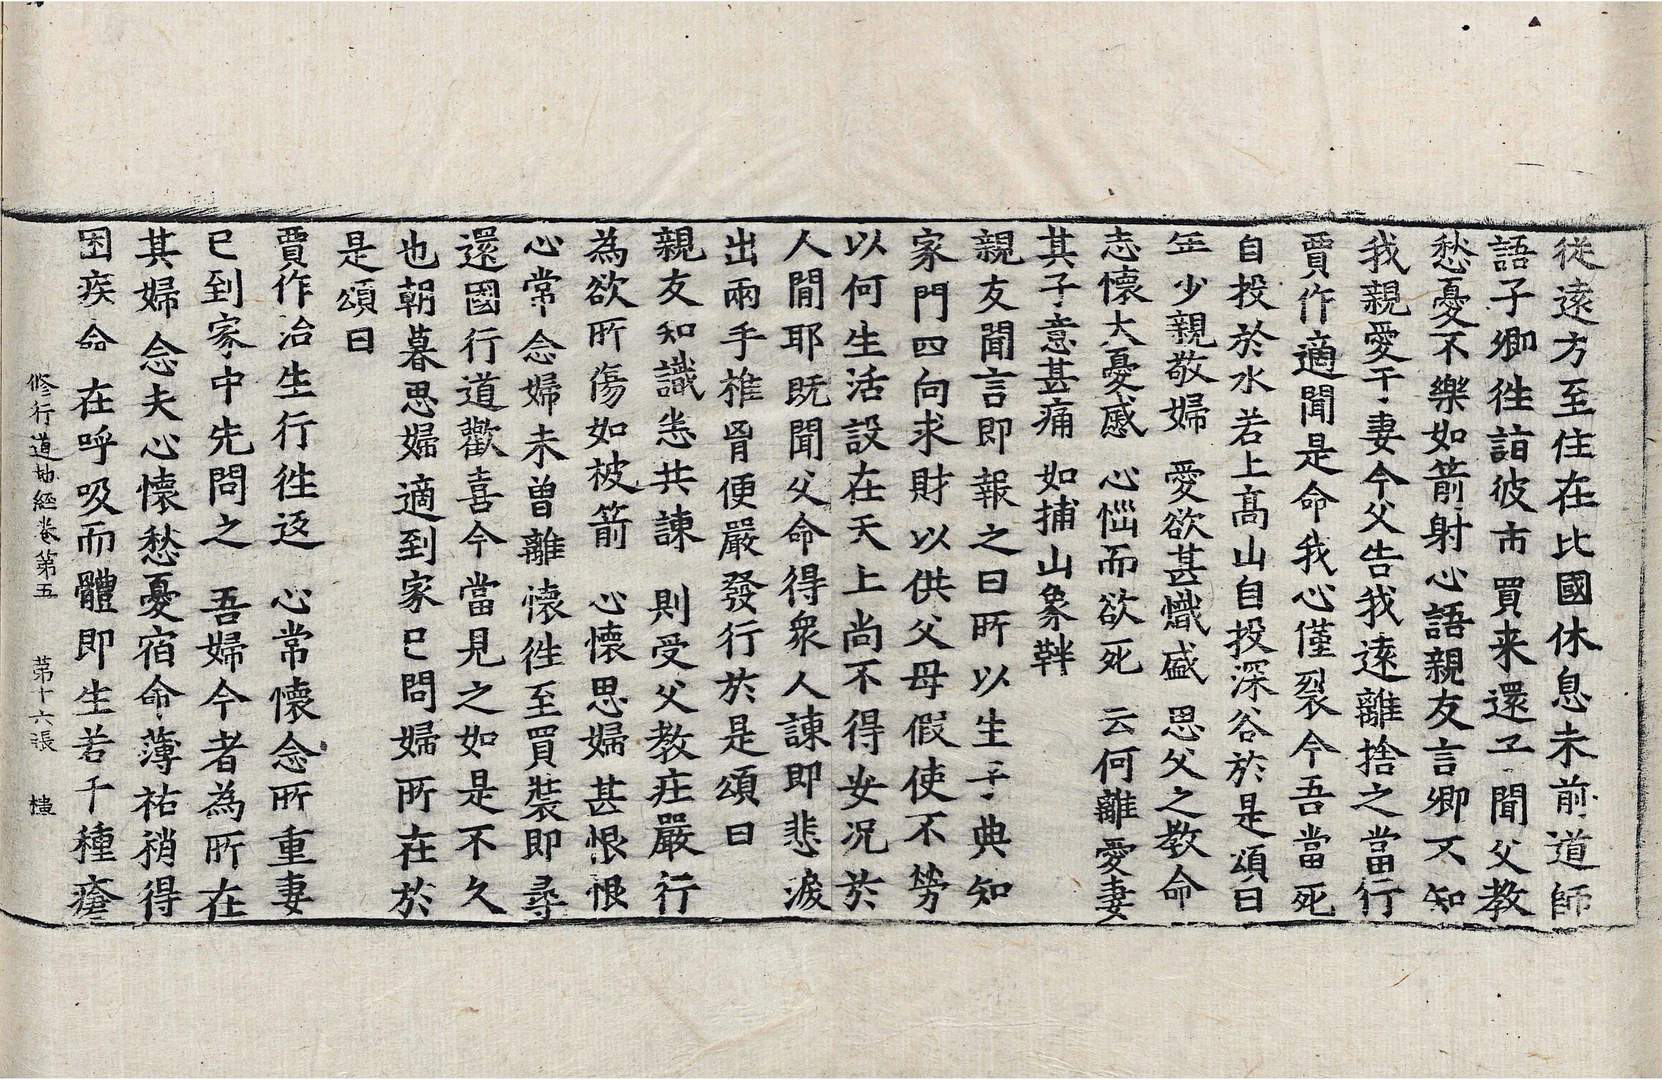 從遠方至住在比國休息未前導師
語子卿徃詣彼市買来還子聞父教
愁憂不樂如箭射心語親友言卿不知
我親愛于妻今父告我遠離捨之當行
賈作適聞是命我心僅裂今吾當死
自投於水若上高山自投深谷於是頌曰
年少親敬婦　愛欲甚熾盛　思父之教命
志懷大憂慼　心惱而欲死　云何離愛妻
其子意甚痛　如捕山象靽
親友聞言即報之曰所以生子典知
家門四向求財以供父母假使不勞
以何生活設在天上尚不得安况於
人間耶既聞父命得衆人諫即悲淚
出兩手椎胷便嚴發行於是頌曰
親友知識悉共諫　則受父教庄嚴行
為欲所傷如被箭　心懷思婦甚恨恨
心常念婦未曾離懷徃至買裝即尋
還國行道歡喜今當見之如是不久
也朝暮思婦適到家已問婦所在於
是頌曰
賈作治生行徃返　心常懷念所重妻
已到家中先問之　吾婦今者為所在
其婦念夫心懷愁憂宿命薄祐稍得
困疾命在呼吸而體即生若干種瘡
修行道地經卷第五　第十六張　樓